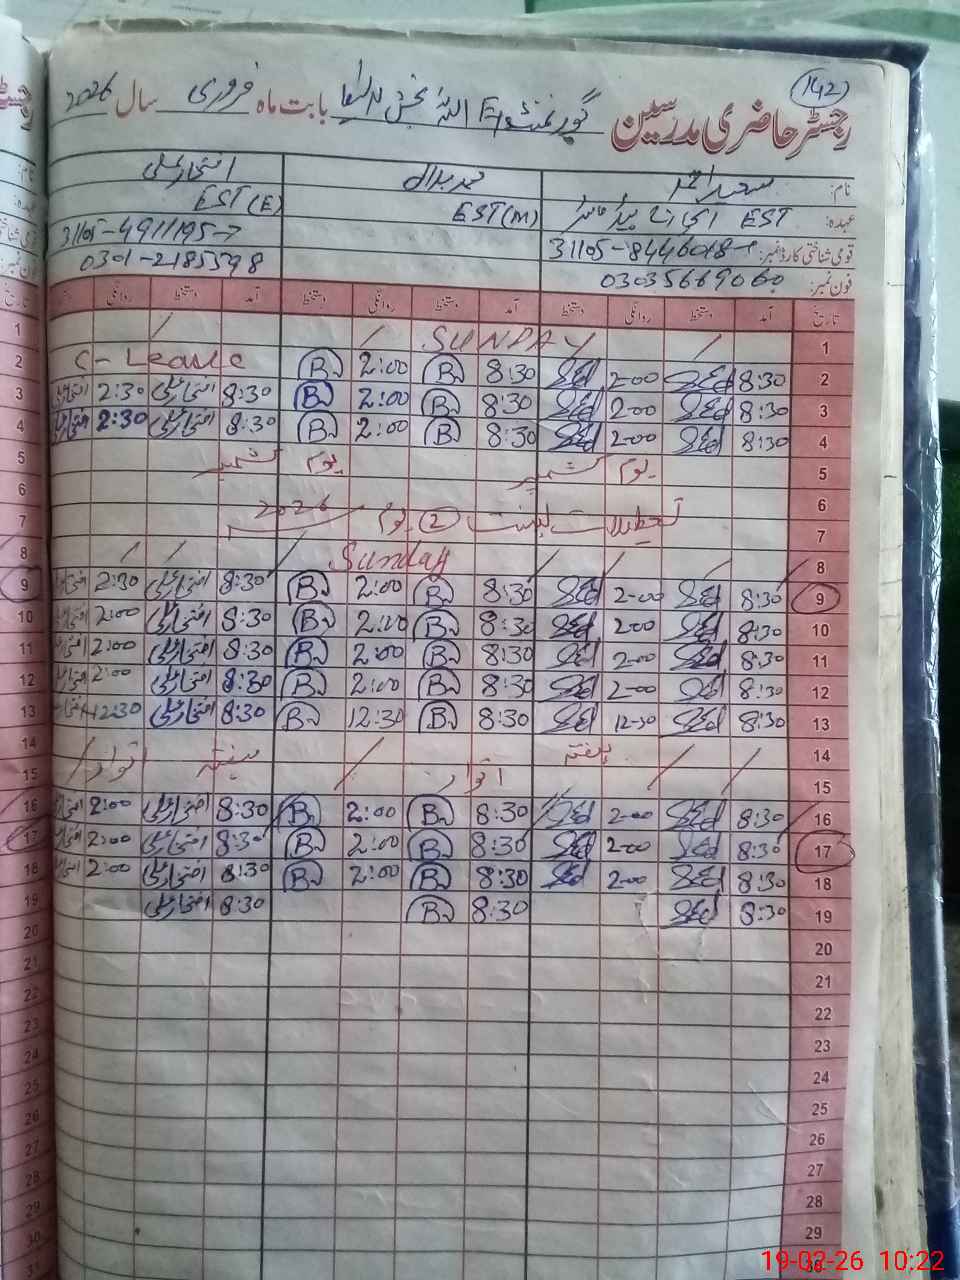 142
رجسٹر حاضری مدرسین گورنمنٹ بابت ماہ فروری سال 2026
نام: سعید افتخار علی
عہدہ: EST EST (M) EST (E)
قومی شناختی کارڈ نمبر: 31105-4911195-7
فون نمبر: 03035669060 0301-2185598
تاریخ آمد دستخط روانگی دستخط آمد دستخط روانگی دستخط آمد دستخط روانگی
1 SUNDAY 1
2 8:30 Sed 2-00 Sed 8:30 B 2:00 B C-Leave 2
3 8:30 Sed 2-00 Sed 8:30 B 2:00 B 8:30 افتخار علی 2:30 3
4 8:30 Sed 2-00 Sed 8:30 B 2:00 B 8:30 افتخار علی 2:30 4
5 یوم کشمیر یوم کشمیر 5
6 تعطیلات بسنت 2 یوم 2026 6
7 7
8 Sunday 8
9 8:30 Sed 2-00 Sed 8:30 B 2:00 B 8:30 افتخار علی 2:30 9
10 8:30 Sed 2-00 Sed 8:30 B 2:00 B 8:30 افتخار علی 2:00 10
11 8:30 Sed 2-00 Sed 8:30 B 2:00 B 8:30 افتخار علی 2:00 11
12 8:30 Sed 2-00 Sed 8:30 B 2:00 B 8:30 افتخار علی 2:00 12
13 8:30 Sed 12-30 Sed 8:30 B 12:30 B 8:30 افتخار علی 12:30 13
14 ہفتہ ہفتہ 14
15 اتوار اتوار 15
16 8:30 Sed 2-00 Sed 8:30 B 2:00 B 8:30 افتخار علی 2:00 16
17 8:30 Sed 2-00 Sed 8:30 B 2:00 B 8:30 افتخار علی 2:00 17
18 8:30 Sed 2-00 Sed 8:30 B 2:00 B 8:30 افتخار علی 2:00 18
19 8:30 Sed 8:30 B 8:30 افتخار علی 19
20 20
21 21
22 22
23 23
24 24
25 25
26 26
27 27
28 28
29 29
30 30
31
19-02-26 10:22